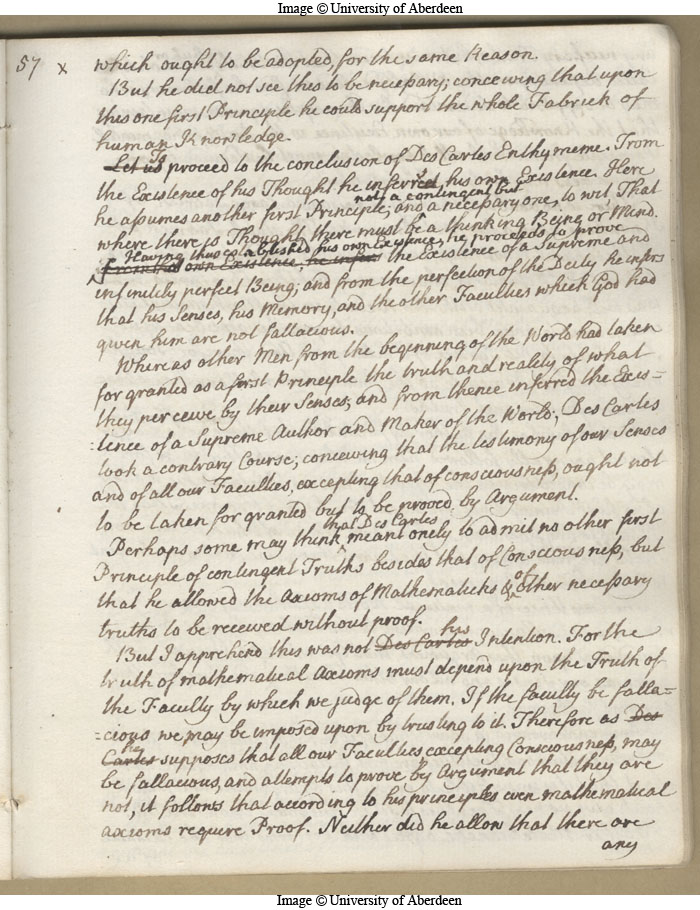 Image © University of Aberdeen
57 x which ought to be adopted, for the same Reason.
But he did not see this to be necessary; conceiving that upon
this one first Principle he could support the whole Fabrick of
human Knowledge.
Let us To proceed to the conclusion of Des Cartes Enthymeme. From
the Existence of his Thought he inferred his own Existence. Here
he assumes another first Principle, not a contingent but and a necessary one, to wit, That
where there is Thought there must be a thinking Being or Mind.
Having thus established his own Existence, he proceeds to prove
own Existence, he infers the Existence of a Supreme and
infinitely perfect Being; and from the perfection of the Deity he infers
that his Senses, his Memory, and the other Faculties which God had
given him are not fallacious.
Whereas other Men from the beginning of the World had taken
for granted as a first Principle the truth and reality of what
they perceive by their Senses; and from thence inferred the Exis=
:tence of a Supreme Author and Maker of the World; Des Cartes
took a contrary Course; conceiving that the testimony of our Senses
and of all our Faculties, excepting that of consciousness, ought not
to be taken for granted but to be proved by Argument.
Perhaps some may think that Des Cartes meant onely to admit no other first
Principle of contingent Truths besides that of Consciousness, but
that he allowed the Axioms of Mathematicks & of other necessary
truths to be received without proof.
But I apprehend this was not Des Cartes his Intention. For the
truth of mathematical Axioms must depend upon the Truth of
the Faculty by which we judge of them. If the faculty be falla=
:cious we may be imposed upon by trusting to it. Therefore as Des
Cartes he supposes that all our Faculties excepting Consciousness, may
be fallacious, and attempts to prove by Argument that they are
not, it follows that according to his principles even mathematical
axioms require Proof. Neither did he allow that there are
any
Image © University of Aberdeen